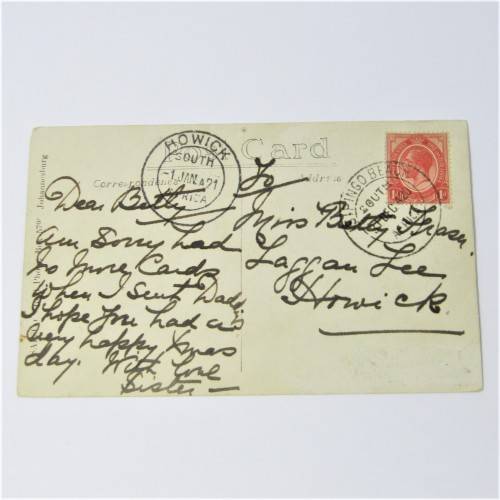 Card
Correspondence
Address
HOWICK
SOUTH
1 JAN 21
RICA
ISIPINGO BEACH
SOUTH
Dear Betty
Am Sorry had
no more Cards
when I sent Dads
I hope you had a
very happy Xmas
day. With love
Sister
To
Miss Betty Fraser
Laggan Lee
Howick
Johannesburg